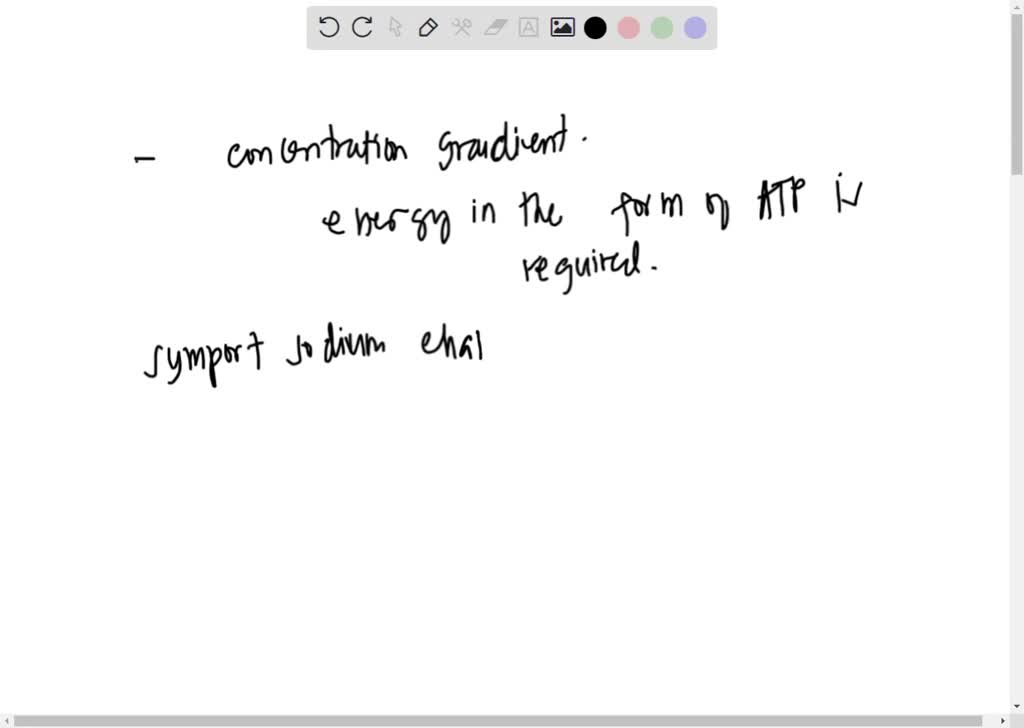 - concentration gradient.
energy in the form of ATP is
required.
symport sodium chal